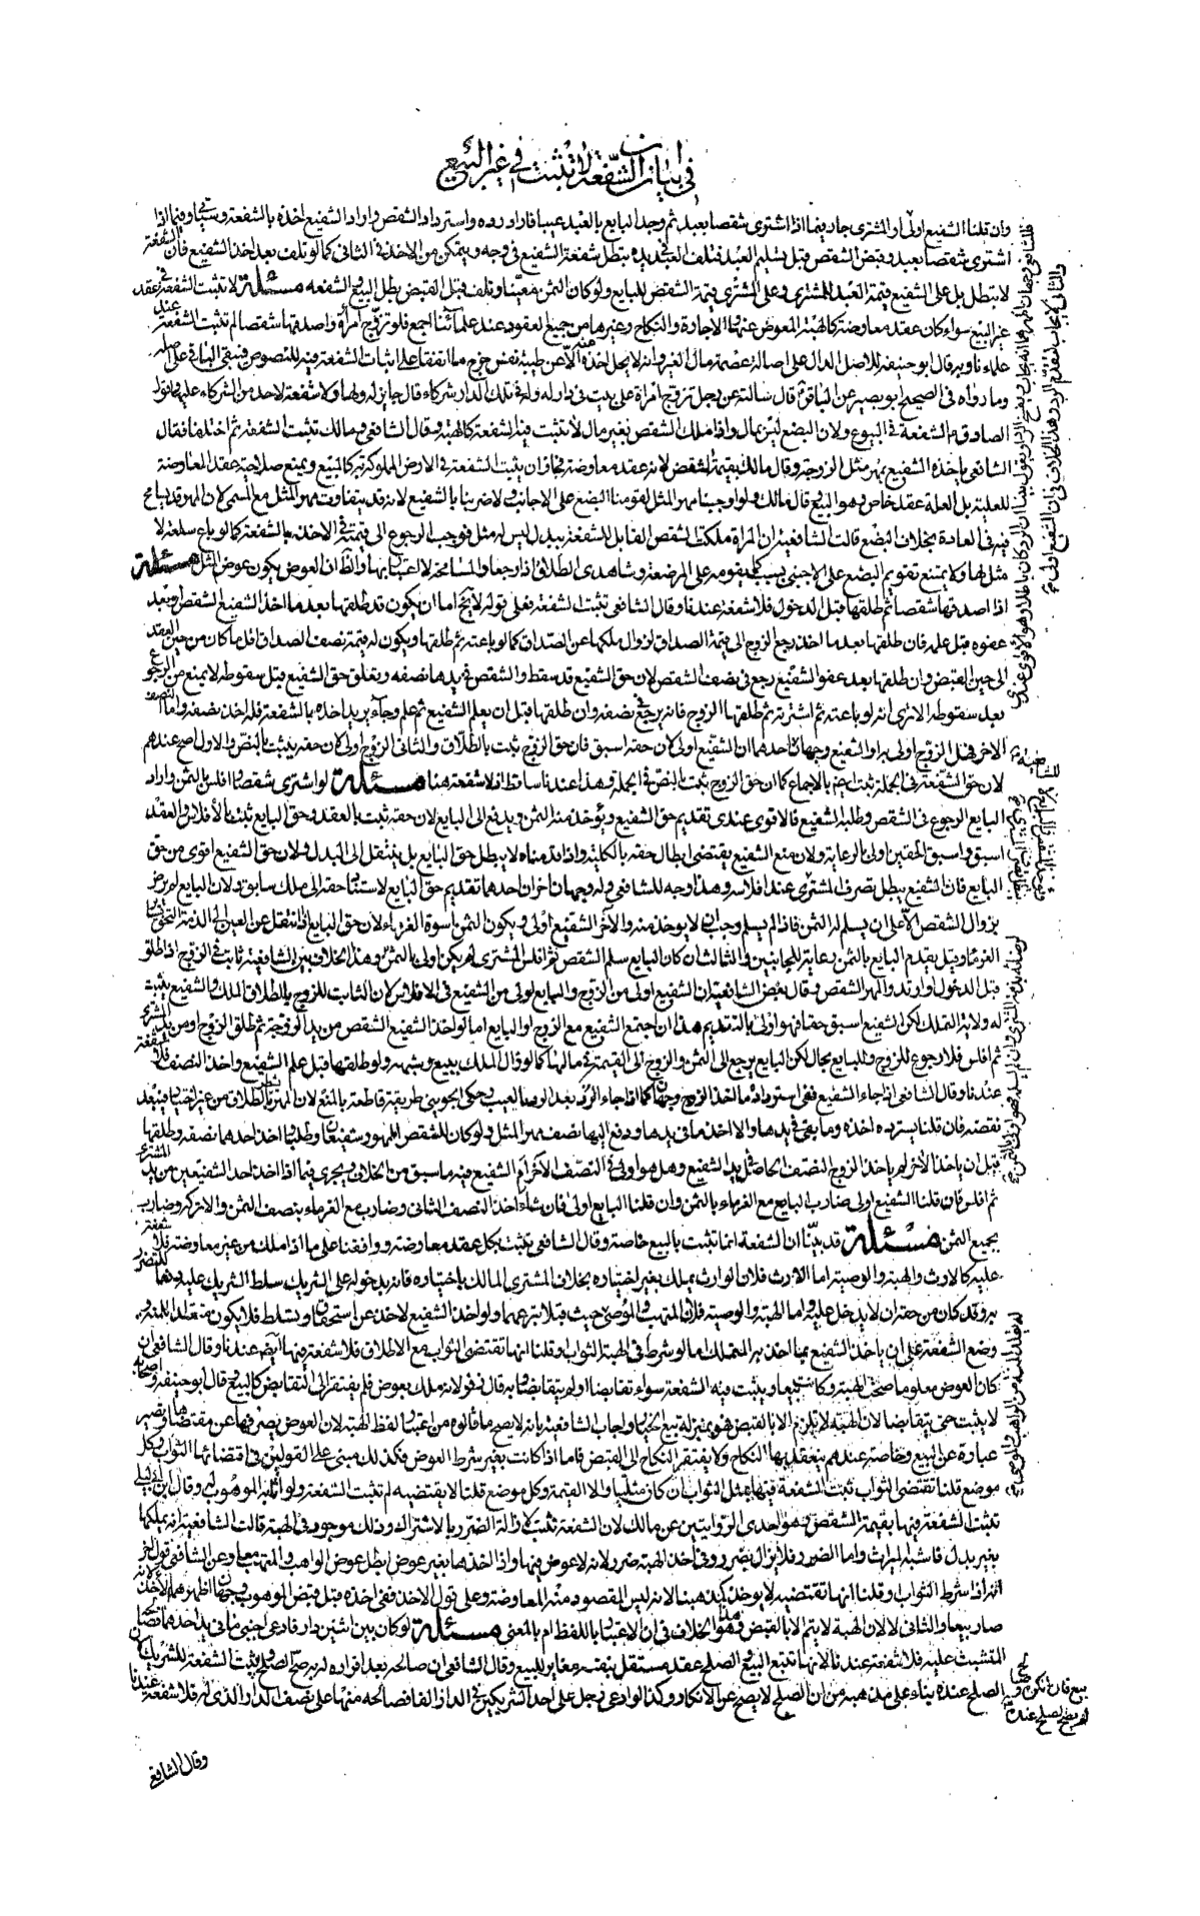 في بيان ان الشفعة لا تثبت في غير البيع
وان قلنا الشفيع اولى او المشترى جاز بينما اذا اشترى شقصا بعبد ثم وجد البايع بالعبد عيبا فاراد رده واسترداد الشقص واراد الشفيع اخذه بالشفعة وسيأتي وفيما اذا
اشترى شقصا بعبد وقبض الشقص قبل تسليم العبد فتلف العبد في يده بتطل شفعة الشفيع في وجه ويتمكن من الاخذ في الثانى كما لو تلف بعد اخذ الشفيع فان الشفعة
لا تبطل بل على الشفيع قيمة العبد للمشترى وعلى المشترى قيمة الشقص للبايع ولو كان الثمن معينا وتلف قبل القبض بطل البيع والشفعه مسئلة لا تثبت الشفعة في عقد
غير البيع سواء كان عقد معاوضة كالهبة المعوض عنها والاجارة والنكاح وغيرها من جميع العقود عند علمائنا اجمع فلو تزوج امرأة واصدقها شقصا لم تثبت الشفعة عند
علمائنا وبه قال ابو حنيفة للاصل الدال على اصالة عصمة مال الغير وانه لا يحل اخذه منه الا عن طيبة نفس خرج ما اتفقنا على اثبات الشفعة فيه للنصوص فيبقى الباقي على اصله
وما رواه في الصحيح ابو بصير عن الباقر قال سالته عن رجل تزوج امراة على بيت في دار له وله في تلك الدار شركاء قال جايز له ولها ولا شفعة لاحد من الشركاء عليها وقول
الصادق الشفعة في البيوع ولان البضع ليس بمال واذا ملك الشقص بغير مال لا تثبت فيه الشفعة كالهبة وقال الشافعى ومالك تثبت الشفعة ثم اختلفا فقال
الشافعى ياخذه الشفيع بمهر مثل الزوجة وقال مالك بقيمة الشقص لانه عقد معاوضة فجاز ان يثبت الشفعة في الارض المملوكة به كالبيع ويمنع صلاحية عقد المعاوضة
للعلية بل العلة عقد خاص وهو البيع قال مالك ولو اوجبنا مهر المثل لقومنا البضع على الاجانب ولاضررنا بالشفيع لانه قد يتفاوت مهر المثل مع المسمى لان المهر قد يسامح
فيه في العادة بخلاف البضع قالت الشافعية ان المراة ملكت الشقص القابل للشفعة ببدل ليس له مثل فوجب الرجوع الى قيمته في الاخذ بالشفعة كما لو باع سلعة لا
مثل لها ولا يمتنع تقويم البضع على الاجنبى بسبب كما يقومه على المرضعة وشاهدى الطلاق اذا رجعا والمسامحة لا اعتبار بها والظاهر ان العوض يكون عوض المثل مسئلة
اذا اصدقها شقصا ثم طلقها قبل الدخول فلا شفعة عندنا وقال الشافعى تثبت الشفعة فعلى قوله لا يخلو اما ان يكون قد طلقها بعد ما اخذ الشفيع الشقص او بعد
عفوه قبل علمه فان طلقها بعد ما اخذ رجع الزوج الى قيمة الصداق لزوال ملكها عن الصداق كما لو باعته ثم طلقها ويكون له قيمة نصف الصداق اقل ما كان من حين العقد
الى حين القبض وان طلقها بعد عفو الشفيع رجع في نصف الشقص لان حق الشفيع قد سقط والشقص في يدها نصفه وتعلق حق الشفيع قبل سقوطه لا يمنع من الرجوع
بعد سقوطه الا ترى انه لو باعته ثم اشترته ثم طلقها الزوج فانه يرجع في نصفه وان طلقها قبل ان يعلم الشفيع ثم علم وجاء يريد اخذه بالشفعة فله اخذ نصفه واما النصف
الاخر فهل الزوج اولى به او الشفيع وجهان احدهما ان الشفيع اولى لان حقه اسبق فان حق الزوج ثبت بالطلاق والثانى الزوج اولى لان حقه يثبت بالنص والاول اصح عندهم
لان حق الشفعة في الجملة ثبت ايضا بالاجماع كما ان حق الزوج ثبت بالنص في الجملة وهذا عندنا ساقط اذ لا شفعة هنا مسئلة لو اشترى شقصا فافلس بالثمن واراد
البايع الرجوع في الشقص وطلبه الشفيع فالاقوى عندى تقديم حق الشفيع ويؤخذ منه الثمن ويدفع الى البايع لان حقه ثبت بالعقد وحق البايع ثبت بالافلاس والعقد
اسبق واسبق الحقين اولى بالرعاية ولان منع الشفيع يقتضى ابطال حقه بالكلية واذا قدمناه لا يبطل حق البايع بل ينتقل الى البدل ولان حق الشفيع اقوى من حق
البايع فان الشفيع يبطل تصرف المشترى عند افلاسه وهذا وجه للشافعى وله وجهان اخران احدهما تقديم حق البايع لاستناد حقه الى ملك سابق ولان البايع لم يرض
بزوال الشقص الا على ان يسلم له الثمن فاذا لم يسلم وجب ان لا يوخذ منه والاخر الشفيع اولى ويكون الثمن اسوة الغرماء لان حق البايع اذا انتقل عن العين الى الذمة التحق بساير
الغرماء وقيل يقدم البايع بالثمن رعاية للجانبين والثالث ان كان البايع سلم الشقص ثم افلس المشترى لم يكن اولى بالثمن وهذا الخلاف بين الشافعية ثابت في الزوج اذا طلق
قبل الدخول او ارتد والمهر الشقص وقال بعض الشافعية ان الشفيع اولى من الزوج والبايع اولى من الشفيع في الافلاس لان الثابت للزوج بالطلاق الملك والشفيع يثبت
له ولاية التملك لكن الشفيع اسبق حقا فهو اولى بالتقديم هذا ان اجتمع الشفيع مع الزوج او البايع اما لو اخذ الشفيع الشقص من يد الزوجة ثم طلق الزوج او من يد المشترى
ثم افلس فلا رجوع للزوج والبايع بحال لكن البايع يرجع الى الثمن والزوج الى القيمة في مالها كما لو زال الملك ببيع وشبهه ولو طلقها قبل علم الشفيع واخذ النصف فلا شفعة
عندنا وقال الشافعى اذا جاء الشفيع ففى استرداده ما اخذ الزوج وجهان كما اذا جاء بعد الرد بالعيب وحكى الجوينى طريقة قاطعة بالمنع لان المهر يتشطر بالطلاق من غير اختيار فيبعد
نقضه فان قلنا يسترده اخذه وما بقى في يدها والا اخذ ما في يدها ودفع اليها نصف مهر المثل ولو كان للشقص الممهور شفيعان وطلبا واخذ احدهما نصفه وطلقها
قبل ان ياخذ الاخر لم ياخذ الزوج النصف الحاصل في يد الشفيع وهل هو اولى في النصف الاخر ام الشفيع فيه ما سبق من الخلاف ويجرى فيما اذا اخذ احد الشفيعين من يد المشترى
ثم افلس فان قلنا الشفيع اولى ضارب البايع مع الغرماء بالثمن وان قلنا البايع اولى فان شاء اخذ النصف الثانى وضارب مع الغرماء بنصف الثمن والا تركه وضارب
بجميع الثمن مسئلة قد بينا ان الشفعة انما تثبت بالبيع خاصة وقال الشافعى تثبت بكل عقد معاوضة ووافقنا على ما اذا ملك من غير معاوضة فلا شفعة
عليه كالارث والهبة والوصية اما الارث فلان الوارث يملك بغير اختياره بخلاف المشترى المالك باختياره فانه بدخوله على الشريك سلط الشريك عليه دفعا للتضرر
به وقد كان من حقه ان لا يدخل عليه واما الهبة والوصية فلان المتهب والموصى حيث تقلا تبرعهما ولو اخذ الشفيع لاخذ عن استحقاق وتسلط فلا يكون متقلدا للمنة و
وضع الشفعة على ان ياخذ الشفيع بما اخذ به المتملك اما لو شرط في الهبة الثواب وقلنا انها تقتضى الثواب مع الاطلاق فلا شفعة فيها ايضا عندنا وقال الشافعى ان
كان العوض معلوما صحت الهبة وكانت بيعا ويثبت فيه الشفعة سواء تقابضا او لم يتقابضا وبه قال زفر لانه ملك بعوض فلم يفتقر الى التقابض كالبيع وقال ابو حنيفة واصحابه
لا يثبت حتى يتقابضا لان الهبة لا تلزم الا بالقبض فهو بمنزلة بيع الخيار واجاب الشافعية بانه لا يصح ما قالوه من اعتبار لفظ الهبة لان العوض يصرفها عن مقتضاها ويصير
عبارة عن البيع وخاصته عندهم ينعقد بها النكاح ولا يفتقر النكاح الى القبض فاما اذا كانت بغير شرط العوض فكذلك مبنى على القولين في اقتضائها الثواب وكل
موضع قلنا تقتضى الثواب ثبت الشفعة فيها بمثل الثواب ان كان مثليا والا القيمة وكل موضع قلنا لا يقتضيه لم تثبت الشفعة ولو اثابه الموهوب له وقال ابن ابى ليلى
تثبت الشفعة فيها بقيمة الشقص وهو احدى الروايتين عن مالك لان الشفعة تثبت لازالة الضرر بالاشتراك وذلك موجود في الهبة قالت الشافعية انه يملكها
بغير بدل فاشبه الميراث واما الضرر فلا يزال بضرر وفي اخذ الهبة ضرر لانه لا عوض فيها واذا اخذها بغير عوض بطل عوض الواهب والمتهب معا وعن الشافعى قول اخر
انه اذا شرط الثواب وقلنا انها تقتضيه لا يوخذ كذا هبنا لانه ليس المقصود منه المعاوضة وعلى قول الاخذ ففى اخذه قبل قبض الموهوب وجهان اظهرهما الاخذ لانه
صار بيعا والثانى لا لان الهبة لا يتم الا بالقبض وهذا هو الخلاف في ان الاعتبار باللفظ ام بالمعنى مسئلة لو كان بين اثنين دار فادعى اجنبى ما في يد احدهما فصالحه
المتشبث عليه فلا شفعة عندنا لانها تتبع البيع والصلح عقد مستقل بنفسه مغاير للبيع وقال الشافعى ان صالحه بعد اقراره له به صح الصلح ويثبت الشفعة للشريك لانه
بيع فان انكره وصالحه لم يصح الصلح عنده بناء على مذهبه من ان الصلح لا يصح عن الانكار وكذا لو ادعى رجل على احد الشريكين في الدار الفا فصالحه منها على نصف الدار الذى له فلا شفعة عندنا
وقال الشافعى